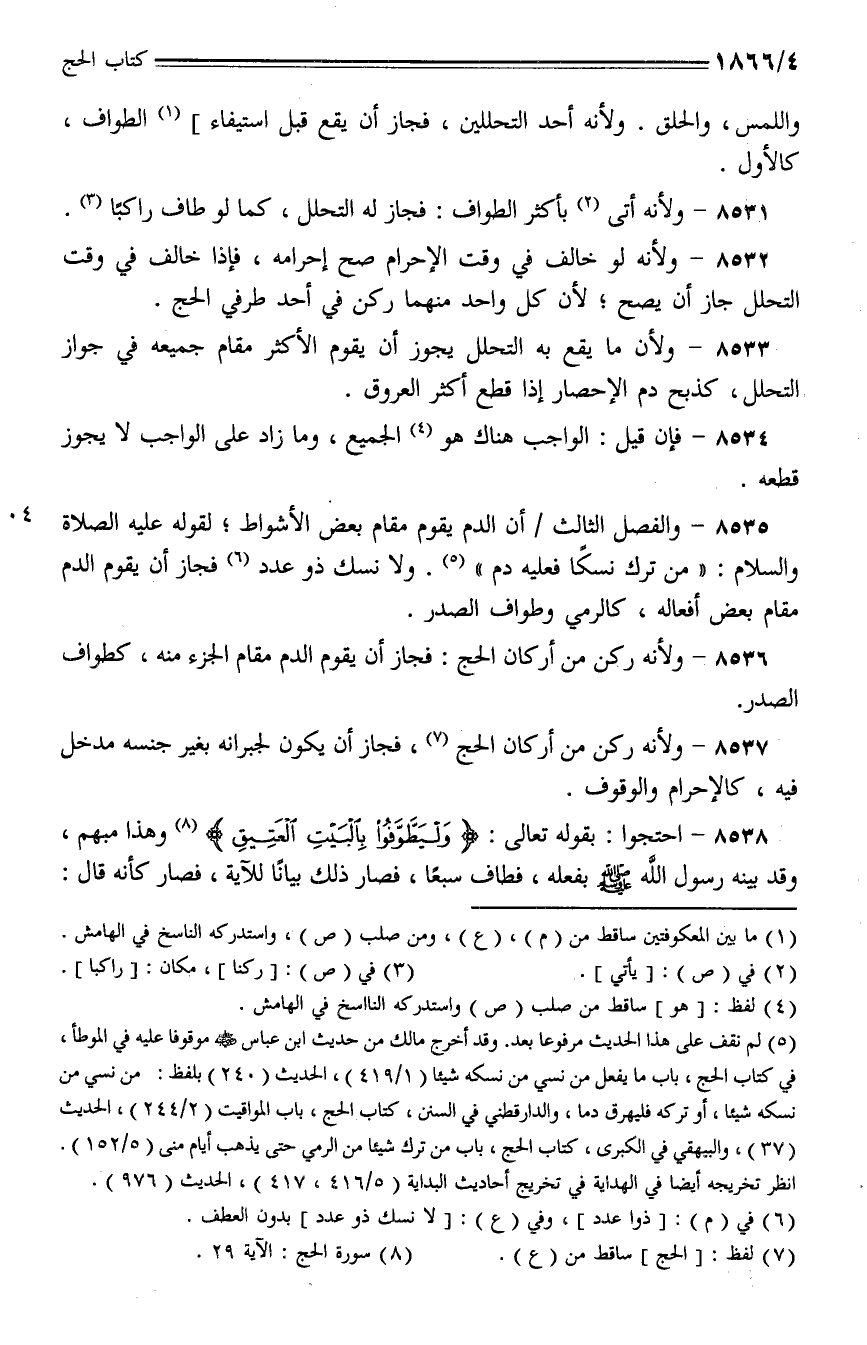 ١٨٦٦/٤ كتاب الحج
واللمس، والحلق . ولأنه أحد التحللين ، فجاز أن يقع قبل استيفاء ] (١) الطواف ،
كالأول .
٨٥٣١ – ولأنه أتى (٢) بأكثر الطواف : فجاز له التحلل ، كما لو طاف راكبًا (٣) .
٨٥٣٢ – ولأنه لو خالف في وقت الإحرام صح إحرامه ، فإذا خالف في وقت
التحلل جاز أن يصح ؛ لأن كل واحد منهما ركن في أحد طرفي الحج .
٨٥٣٣ – ولأن ما يقع به التحلل يجوز أن يقوم الأكثر مقام جميعه في جواز
التحلل، كذبح دم الإحصار إذا قطع أكثر العروق .
٨٥٣٤ – فإن قيل : الواجب هناك هو (٤) الجميع ، وما زاد على الواجب لا يجوز
قطعه .
٨٥٣٥ – والفصل الثالث / أن الدم يقوم مقام بعض الأشواط ؛ لقوله عليه الصلاة ٠٤
والسلام : « من ترك نسكًا فعليه دم » (٥) . ولا نسك ذو عدد (٦) فجاز أن يقوم الدم
مقام بعض أفعاله ، كالرمي وطواف الصدر .
٨٥٣٦ – ولأنه ركن من أركان الحج : فجاز أن يقوم الدم مقام الجزء منه ، كطواف
الصدر.
٨٥٣٧ – ولأنه ركن من أركان الحج (٧) ، فجاز أن يكون لجبرانه بغير جنسه مدخل
فيه ، كالإحرام والوقوف .
٨٥٣٨ – احتجوا : بقوله تعالى : ﴿ وَلْيَطَّوَّفُوا۟ بِٱلْبَيْتِ ٱلْعَتِيقِ ﴾ (٨) وهذا مبهم ،
وقد بينه رسول اللَّه ﷺ بفعله ، فطاف سبعًا ، فصار ذلك بيانًا للآية ، فصار كأنه قال :
(١) ما بين المعكوفتين ساقط من ( م ) ، ( ع ) ، ومن صلب ( ص ) ، واستدركه الناسخ في الهامش .
(٢) في ( ص ) : [ يأتي ] . (٣) في ( ص ) : [ ركنا ] ، مكان : [ راكبا ] .
(٤) لفظ : [ هو ] ساقط من صلب ( ص ) واستدركه النااسخ في الهامش .
(٥) لم نقف على هذا الحديث مرفوعا بعد. وقد أخرج مالك من حديث ابن عباس موقوفا عليه في الموطأ ،
في كتاب الحج ، باب ما يفعل من نسي من نسكه شيئا ( ٤١٩/١ ) ، الحديث ( ٢٤٠ ) بلفظ : من نسي من
نسكه شيئا ، أو تركه فليهرق دما ، والدارقطني في السنن ، كتاب الحج ، باب المواقيت ( ٢٤٤/٢ ) ، الحديث
( ٣٧ ) ، والبيهقي في الكبرى ، كتاب الحج ، باب من ترك شيئا من الرمي حتى يذهب أيام منى ( ١٥٢/٥ ) .
انظر تخريجه أيضا في الهداية في تخريج أحاديث البداية ( ٤١٦/٥ ، ٤١٧ ) ، الحديث ( ٩٧٦ ) .
(٦) في ( م ) : [ ذوا عدد ] ، وفي ( ع ) : [ لا نسك ذو عدد ] بدون العطف .
(٧) لفظ : [ الحج ] ساقط من ( ع ) . (٨) سورة الحج : الآية ٢٩ .